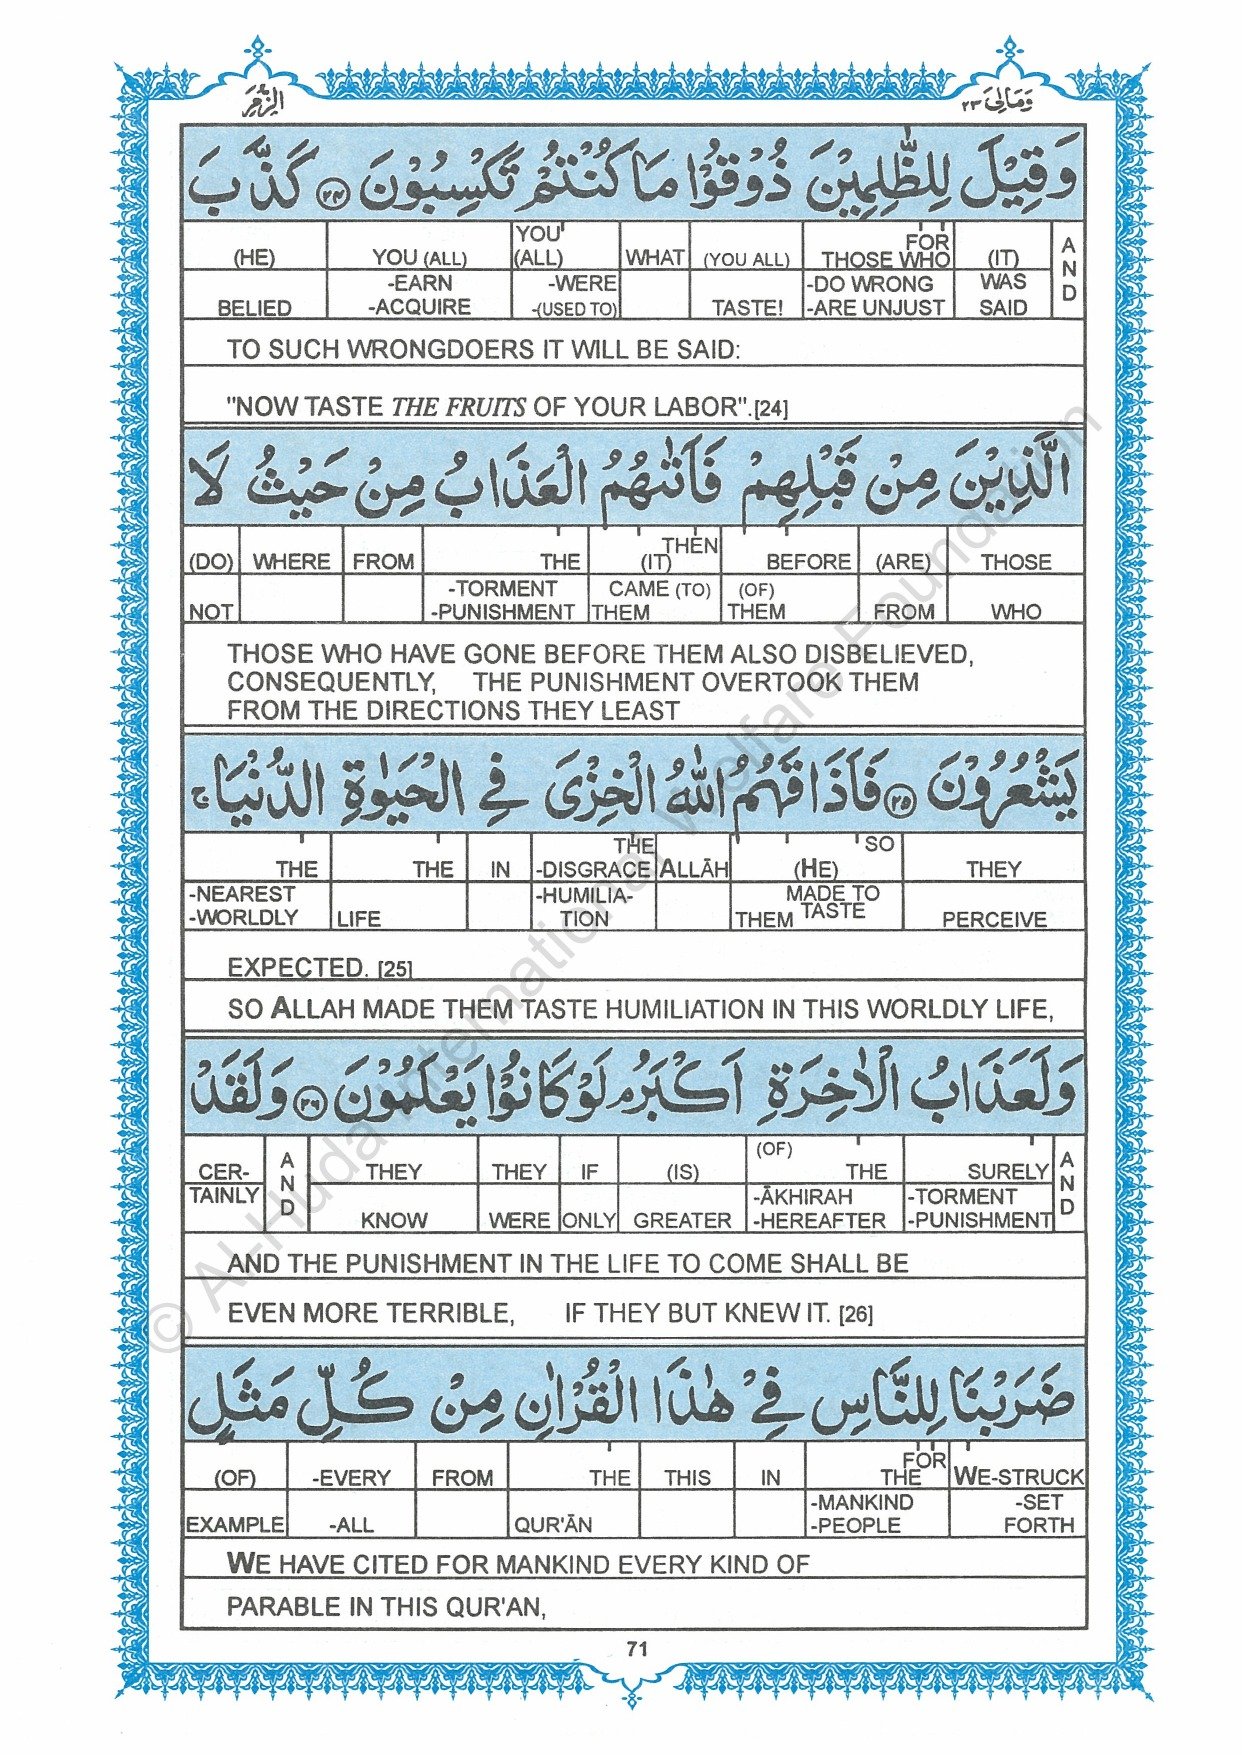 الزمر
ومالى ٢٣
وَقِيْلَ لِلظّٰلِمِيْنَ ذُوْقُوْا مَا كُنْتُمْ تَكْسِبُوْنَ ﴿٢٤﴾ كَذَّبَ
(HE) YOU (ALL) YOU (ALL) WHAT (YOU ALL) FOR THOSE WHO (IT) AND
BELIED -EARN -ACQUIRE -WERE -(USED TO) TASTE! -DO WRONG -ARE UNJUST WAS SAID
TO SUCH WRONGDOERS IT WILL BE SAID:
"NOW TASTE THE FRUITS OF YOUR LABOR".[24]
الَّذِيْنَ مِنْ قَبْلِهِمْ فَاَتٰىهُمُ الْعَذَابُ مِنْ حَيْثُ لَا
(DO) WHERE FROM THE THEN (IT) BEFORE (ARE) THOSE
NOT -TORMENT -PUNISHMENT CAME (TO) THEM (OF) THEM FROM WHO
THOSE WHO HAVE GONE BEFORE THEM ALSO DISBELIEVED,
CONSEQUENTLY, THE PUNISHMENT OVERTOOK THEM
FROM THE DIRECTIONS THEY LEAST
يَشْعُرُوْنَ ﴿٢٥﴾ فَاَذَاقَهُمُ اللّٰهُ الْخِزْيَ فِي الْحَيٰوةِ الدُّنْيَا ۚ
THE THE IN THE -DISGRACE ALLĀH (HE) SO THEY
-NEAREST -WORLDLY LIFE -HUMILIA-TION THEM MADE TO TASTE PERCEIVE
EXPECTED. [25]
SO ALLAH MADE THEM TASTE HUMILIATION IN THIS WORLDLY LIFE,
وَلَعَذَابُ الْاٰخِرَةِ اَكْبَرُ لَوْ كَانُوْا يَعْلَمُوْنَ ﴿٢٦﴾ وَلَقَدْ
CER- AND THEY THEY IF (IS) (OF) THE SURELY AND
TAINLY KNOW WERE ONLY GREATER -ĀKHIRAH -HEREAFTER -TORMENT -PUNISHMENT
AND THE PUNISHMENT IN THE LIFE TO COME SHALL BE
EVEN MORE TERRIBLE, IF THEY BUT KNEW IT. [26]
ضَرَبْنَا لِلنَّاسِ فِيْ هٰذَا الْقُرْاٰنِ مِنْ كُلِّ مَثَلٍ
(OF) -EVERY FROM THE THIS IN FOR THE WE-STRUCK
EXAMPLE -ALL QUR'ĀN -MANKIND -PEOPLE -SET FORTH
WE HAVE CITED FOR MANKIND EVERY KIND OF
PARABLE IN THIS QUR'AN,
71
© Al-Huda International Welfare Foundation